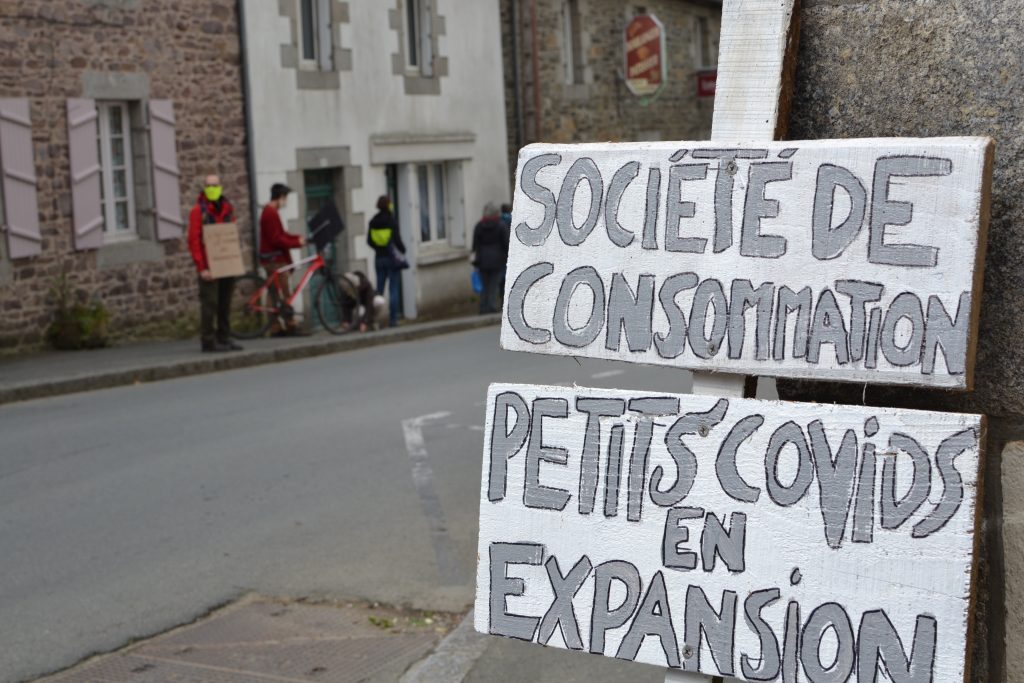 SOCIÉTÉ DE
CONSOMMATION
PETITS COViDS
EN
EXPANSiON